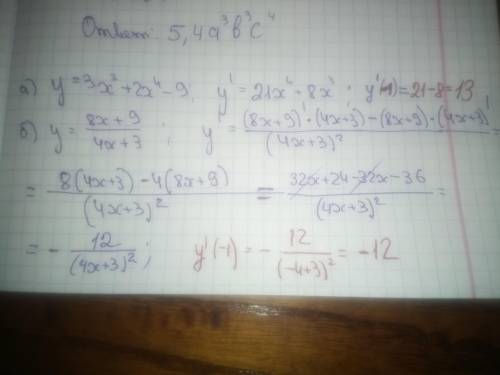 Ответ: 5,4a³b³c⁴
а) y = 3x⁷ + 2x⁴ - 9; y' = 21x⁶ + 8x³; y'(-1) = 21 - 8 = 13
б) y = (8x + 9)/(4x + 3); y' = ((8x + 9)' · (4x + 3) - (8x + 9) · (4x + 3)')/(4x + 3)² =
= (8(4x + 3) - 4(8x + 9))/(4x + 3)² = (32x + 24 - 32x - 36)/(4x + 3)² =
= - 12/(4x + 3)²; y'(-1) = - 12/(-4 + 3)² = -12